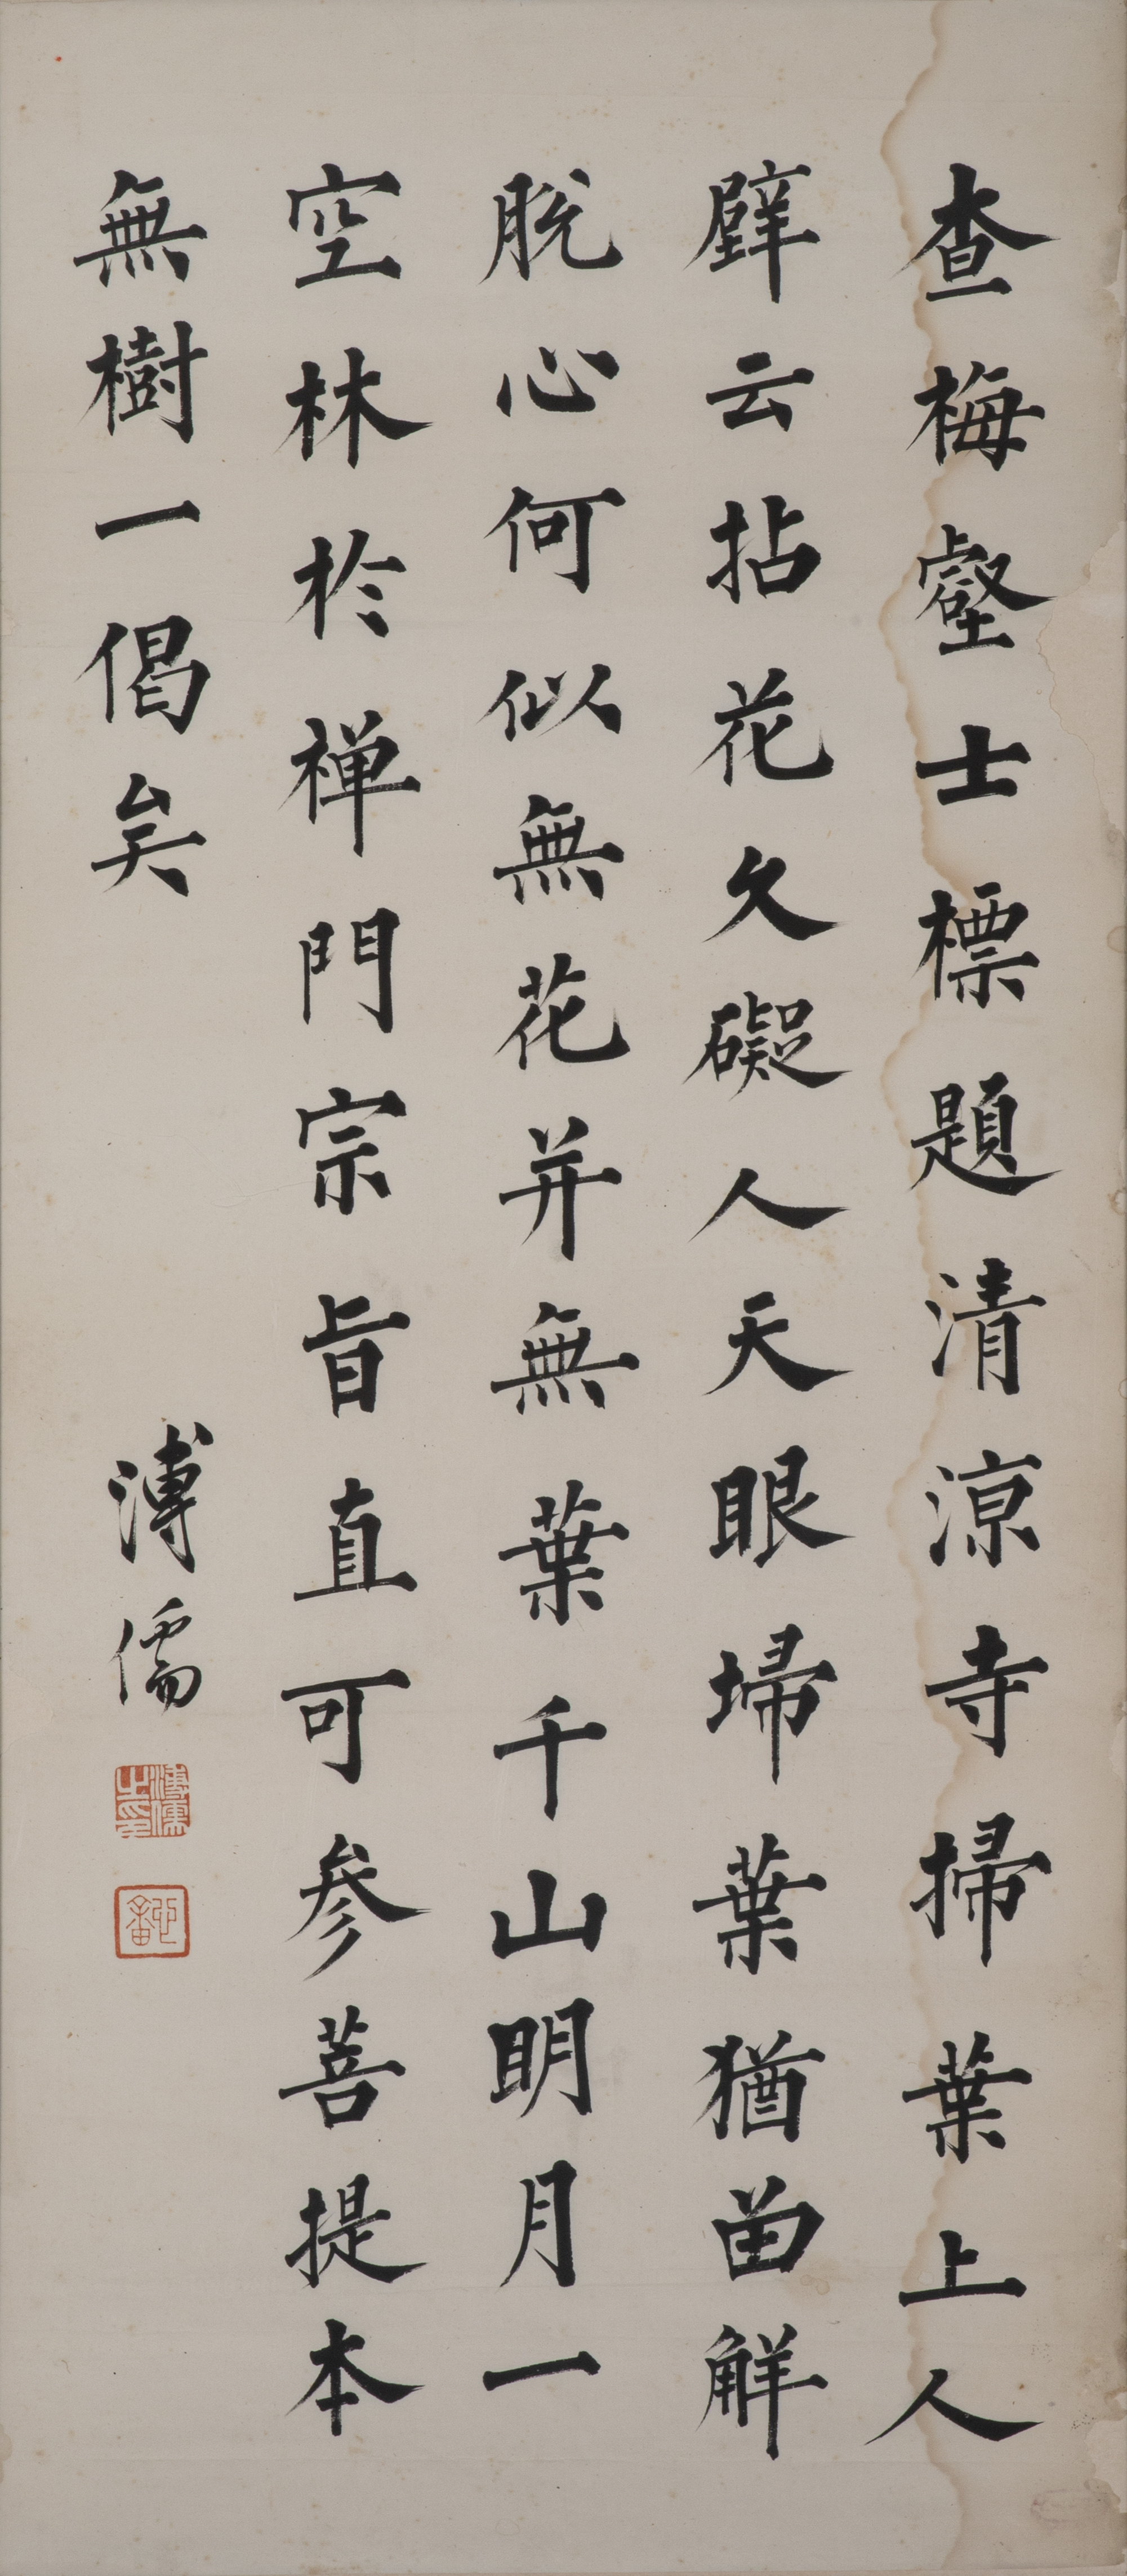 查梅壑士標題清涼寺掃葉上人
壁云拈花久礙人天眼埽葉猶留解
脫心何似無花并無葉千山明月一
空林於禅門宗旨直可參菩提本
無樹一偈矣
溥儒
溥儒之印